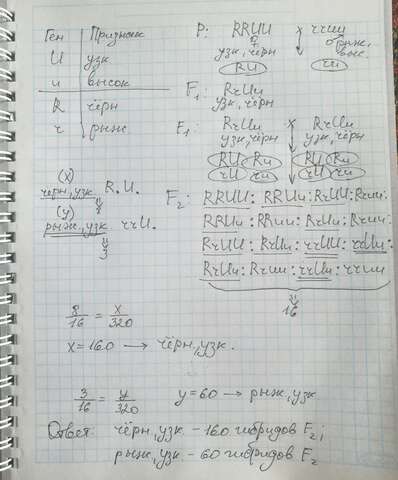 Ген Признак
U узк
u высок
R чёрн
r рыж
P: RRUU x rruu
♀ ♂
узк, чёрн рыж, выс.
RU ru
F1: RrUu
узк, чёрн
F1: RrUu x RrUu
узк, чёрн узк, чёрн
RU Ru RU Ru
rU ru rU ru
(x)
черн, узк R.U.
8
(y)
рыж, узк rrU.
3
F2: RRUU : RRUu : RrUU : RrUu :
RRUu : RRuu : RrUu : Rruu :
RrUU : RrUu : rrUU : rrUu :
RrUu : Rruu : rrUu : rruu
16
8/16 = x/320
x = 160 → чёрн, узк.
3/16 = y/320 y = 60 → рыж, узк
Ответ: чёрн, узк - 160 гибридов F2;
рыж, узк - 60 гибридов F2